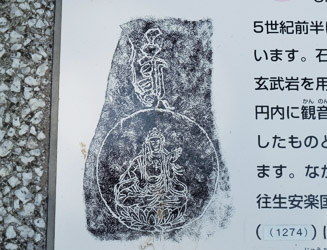 5世紀前半に
います。石
玄武岩を用
円内に観音
かんのん
したものと
ます。なか
往生安楽国
(（1274）)